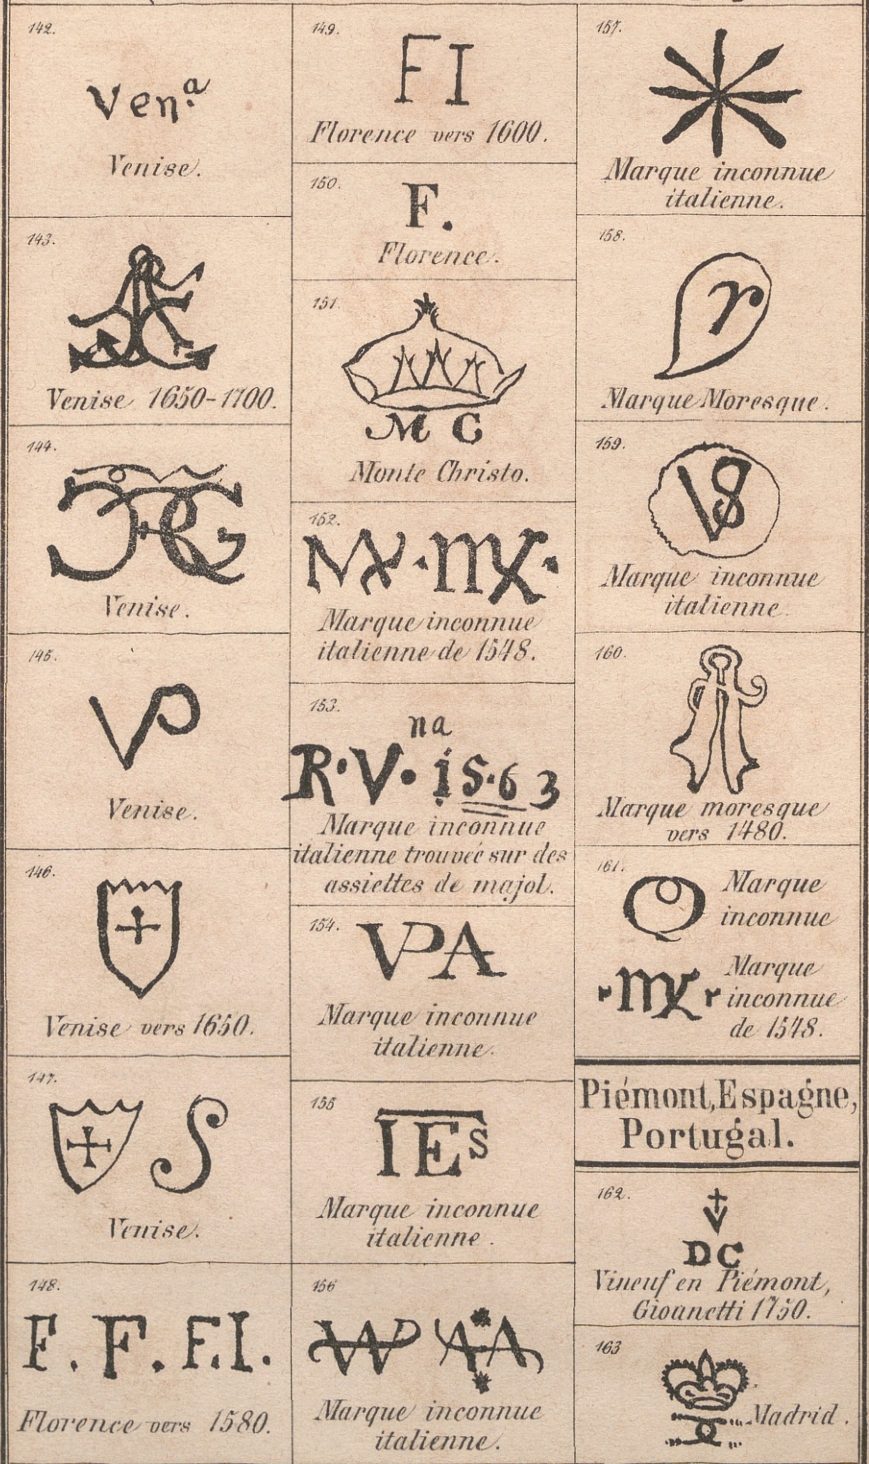 142.
Ven.a
Venise.
143.
Venise 1650-1700.
144.
Venise.
145.
VP
Venise.
146.
Venise vers 1650.
147.
S
Venise.
148.
F. F. F.I.
Florence vers 1580.
149.
FI
Florence vers 1600.
150.
F.
Florence.
151.
M C
Monte Christo.
152.
Marque inconnue
italienne de 1548.
153.
na
R·V· i5·63
Marque inconnue
italienne trouvée sur des
assiettes de majol.
154.
VPA
Marque inconnue
italienne.
155
IEs
Marque inconnue
italienne.
156
Marque inconnue
italienne.
157.
Marque inconnue
italienne.
158.
r
Marque Moresque.
159.
VS
Marque inconnue
italienne.
160.
Marque moresque
vers 1480.
161.
Marque
inconnue
Marque
inconnue
de 1548.
Piémont, Espagne,
Portugal.
162.
DC
Vineuf en Piémont,
Gioanetti 1750.
163
Madrid.